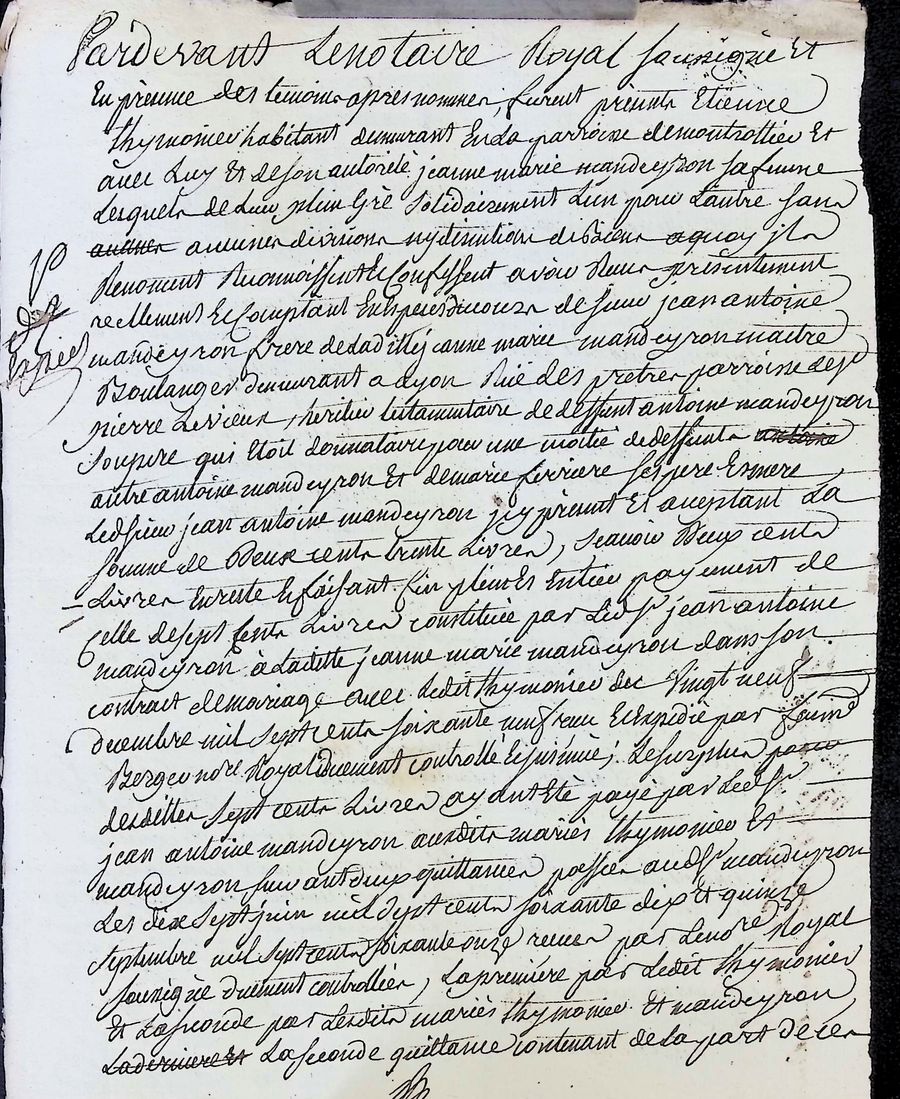 Pardevant Lenotaire Royal sousigné Et
En présence des témoins apres nommés, furent présents Etienne
thymonier habitant demeurant En La parroisse demontrottier Et
avec Luy Et deson autorité jeanne marie mandeyron sa femme
Lesquels de Leur plein Gré solidairement L'un pour L'autre sans
aucunes divisions ny dixution de biens aquoy ils
Renoncent Reconnoissent Et Confessent avoir Reçus présentement
reellement Et Comptant En Espéces de cours de sieur jean antoine
mandeyron frere deladitte jeanne marie mandeyron maitre
Boulanger demeurant a Lyon Rüe des pretres parroisse de St
pierre Levieux, heritier testamentaire de deffunt antoine mandeyron
son pere qui Etoit donnataire pour une moitié dedeffunts antoine
autre antoine mandeyron Et de marie ferriere ses pere Et mere
Ledsieur jean antoine mandeyron icy présent Et aceptant La
somme de Deux cents trente Livres, scavoir Deux cents
Livres En reste Et faisant fin plein Et Entier payement de
Celle de sept Cents Livres constituée par Led Sr jean antoine
mandeyron à Laditte jeanne marie mandeyron dans son
contract demariage avec Ledit thymonier du Vingt neuf
decembre mil sept cents soixante neuf reçu Et Expedié par
Berger nore Royal Duement controllé Et insinué; Le surplus
desdittes sept cents Livres ayant Eté payé par Led Sr
jean antoine mandeyron auxdits mariés thymonier Et
mandeyron suivant deux quittances passées aud Sr mandeyron
Les dix sept juin mil sept cents soixante dix Et quinze
septembre mil sept cents soixante onze recues par Lenore Royal
sousigné Duement controllées, La premiere par Ledit thymonier
Et La seconde par Lesdits mariés thymonier Et mandeyron,
La derniere Et La seconde quittance contenant de La part de ces